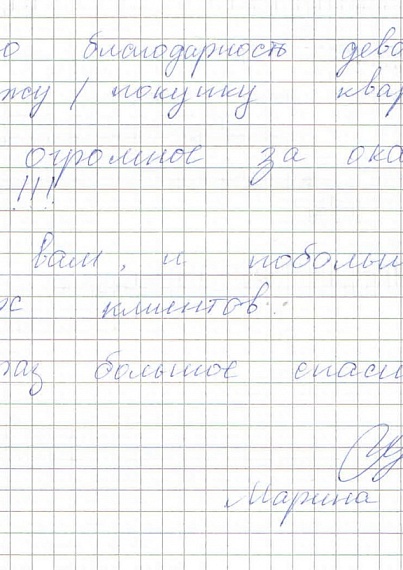 о благодарность дево
жу / покупку квар
огромное за ока
!!!
вам, и поболь
ос клиентов..
раз большое спаси
Марина